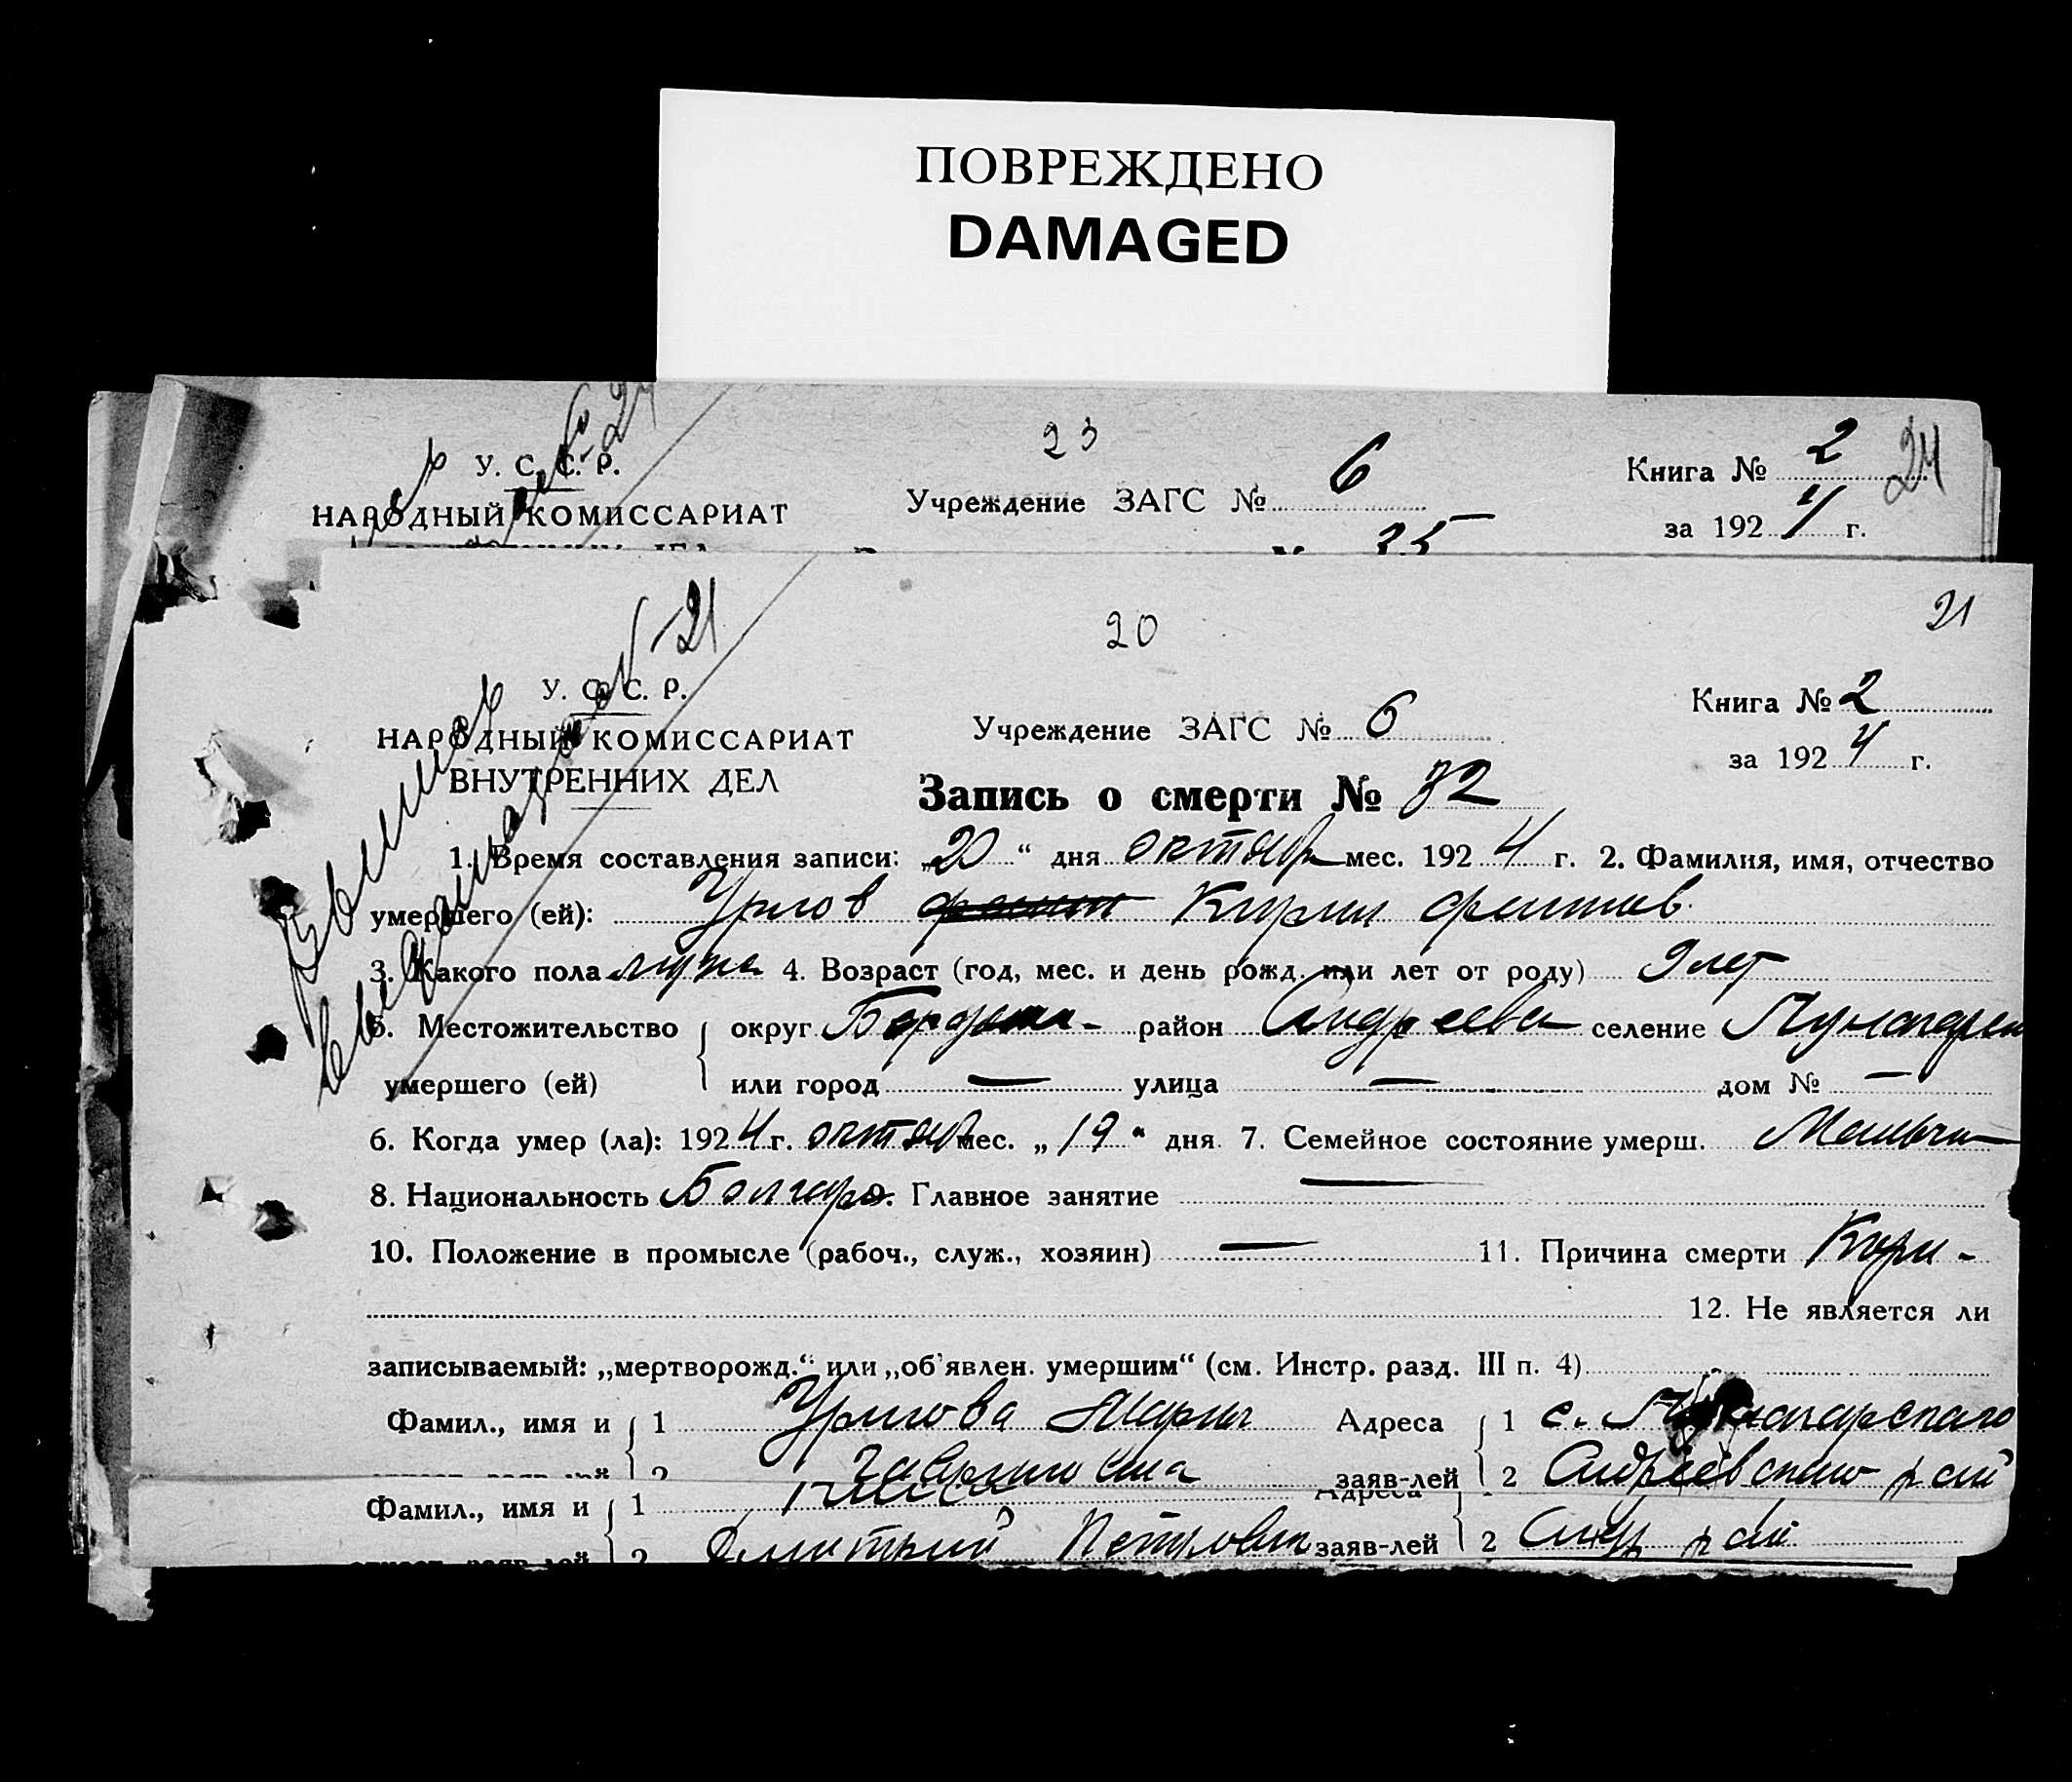 ПОВРЕЖДЕНО
DAMAGED
23
У. С. С. Р.
НАРОДНЫЙ КОМИССАРИАТ
Учреждение ЗАГС № 6
Книга № 2
24
за 1924 г.
35
20
21
У. С. С. Р.
НАРОДНЫЙ КОМИССАРИАТ
ВНУТРЕННИХ ДЕЛ
Учреждение ЗАГС № 6
Книга № 2
за 1924 г.
Запись о смерти № 32
1. Время составления записи: „20“ дня октябр мес. 1924 г. 2. Фамилия, имя, отчество
умершего (ей): Урлов Кирил
3. Какого пола мужс 4. Возраст (год, мес. и день рожд. или лет от роду) 9 лет
5. Местожительство округ район Андреевск селение
умершего (ей) или город — улица — дом № —
6. Когда умер (ла): 1924 г. октябр мес. „19“ дня 7. Семейное состояние умерш.
8. Национальность Болгар 9. Главное занятие —
10. Положение в промысле (рабоч., служ., хозяин) — 11. Причина смерти Кори -
12. Не является ли
записываемый: „мертворожд.“ или „об'явлен. умершим“ (см. Инстр. разд. III п. 4)
Фамил., имя и 1 Урлова Мария Адреса 1 с.
2 Гавриловна заяв-лей 2 Андреевского рай
Фамил., имя и 1 Адреса
2 Дмитрий Петрович заяв-лей 2 Андр рай